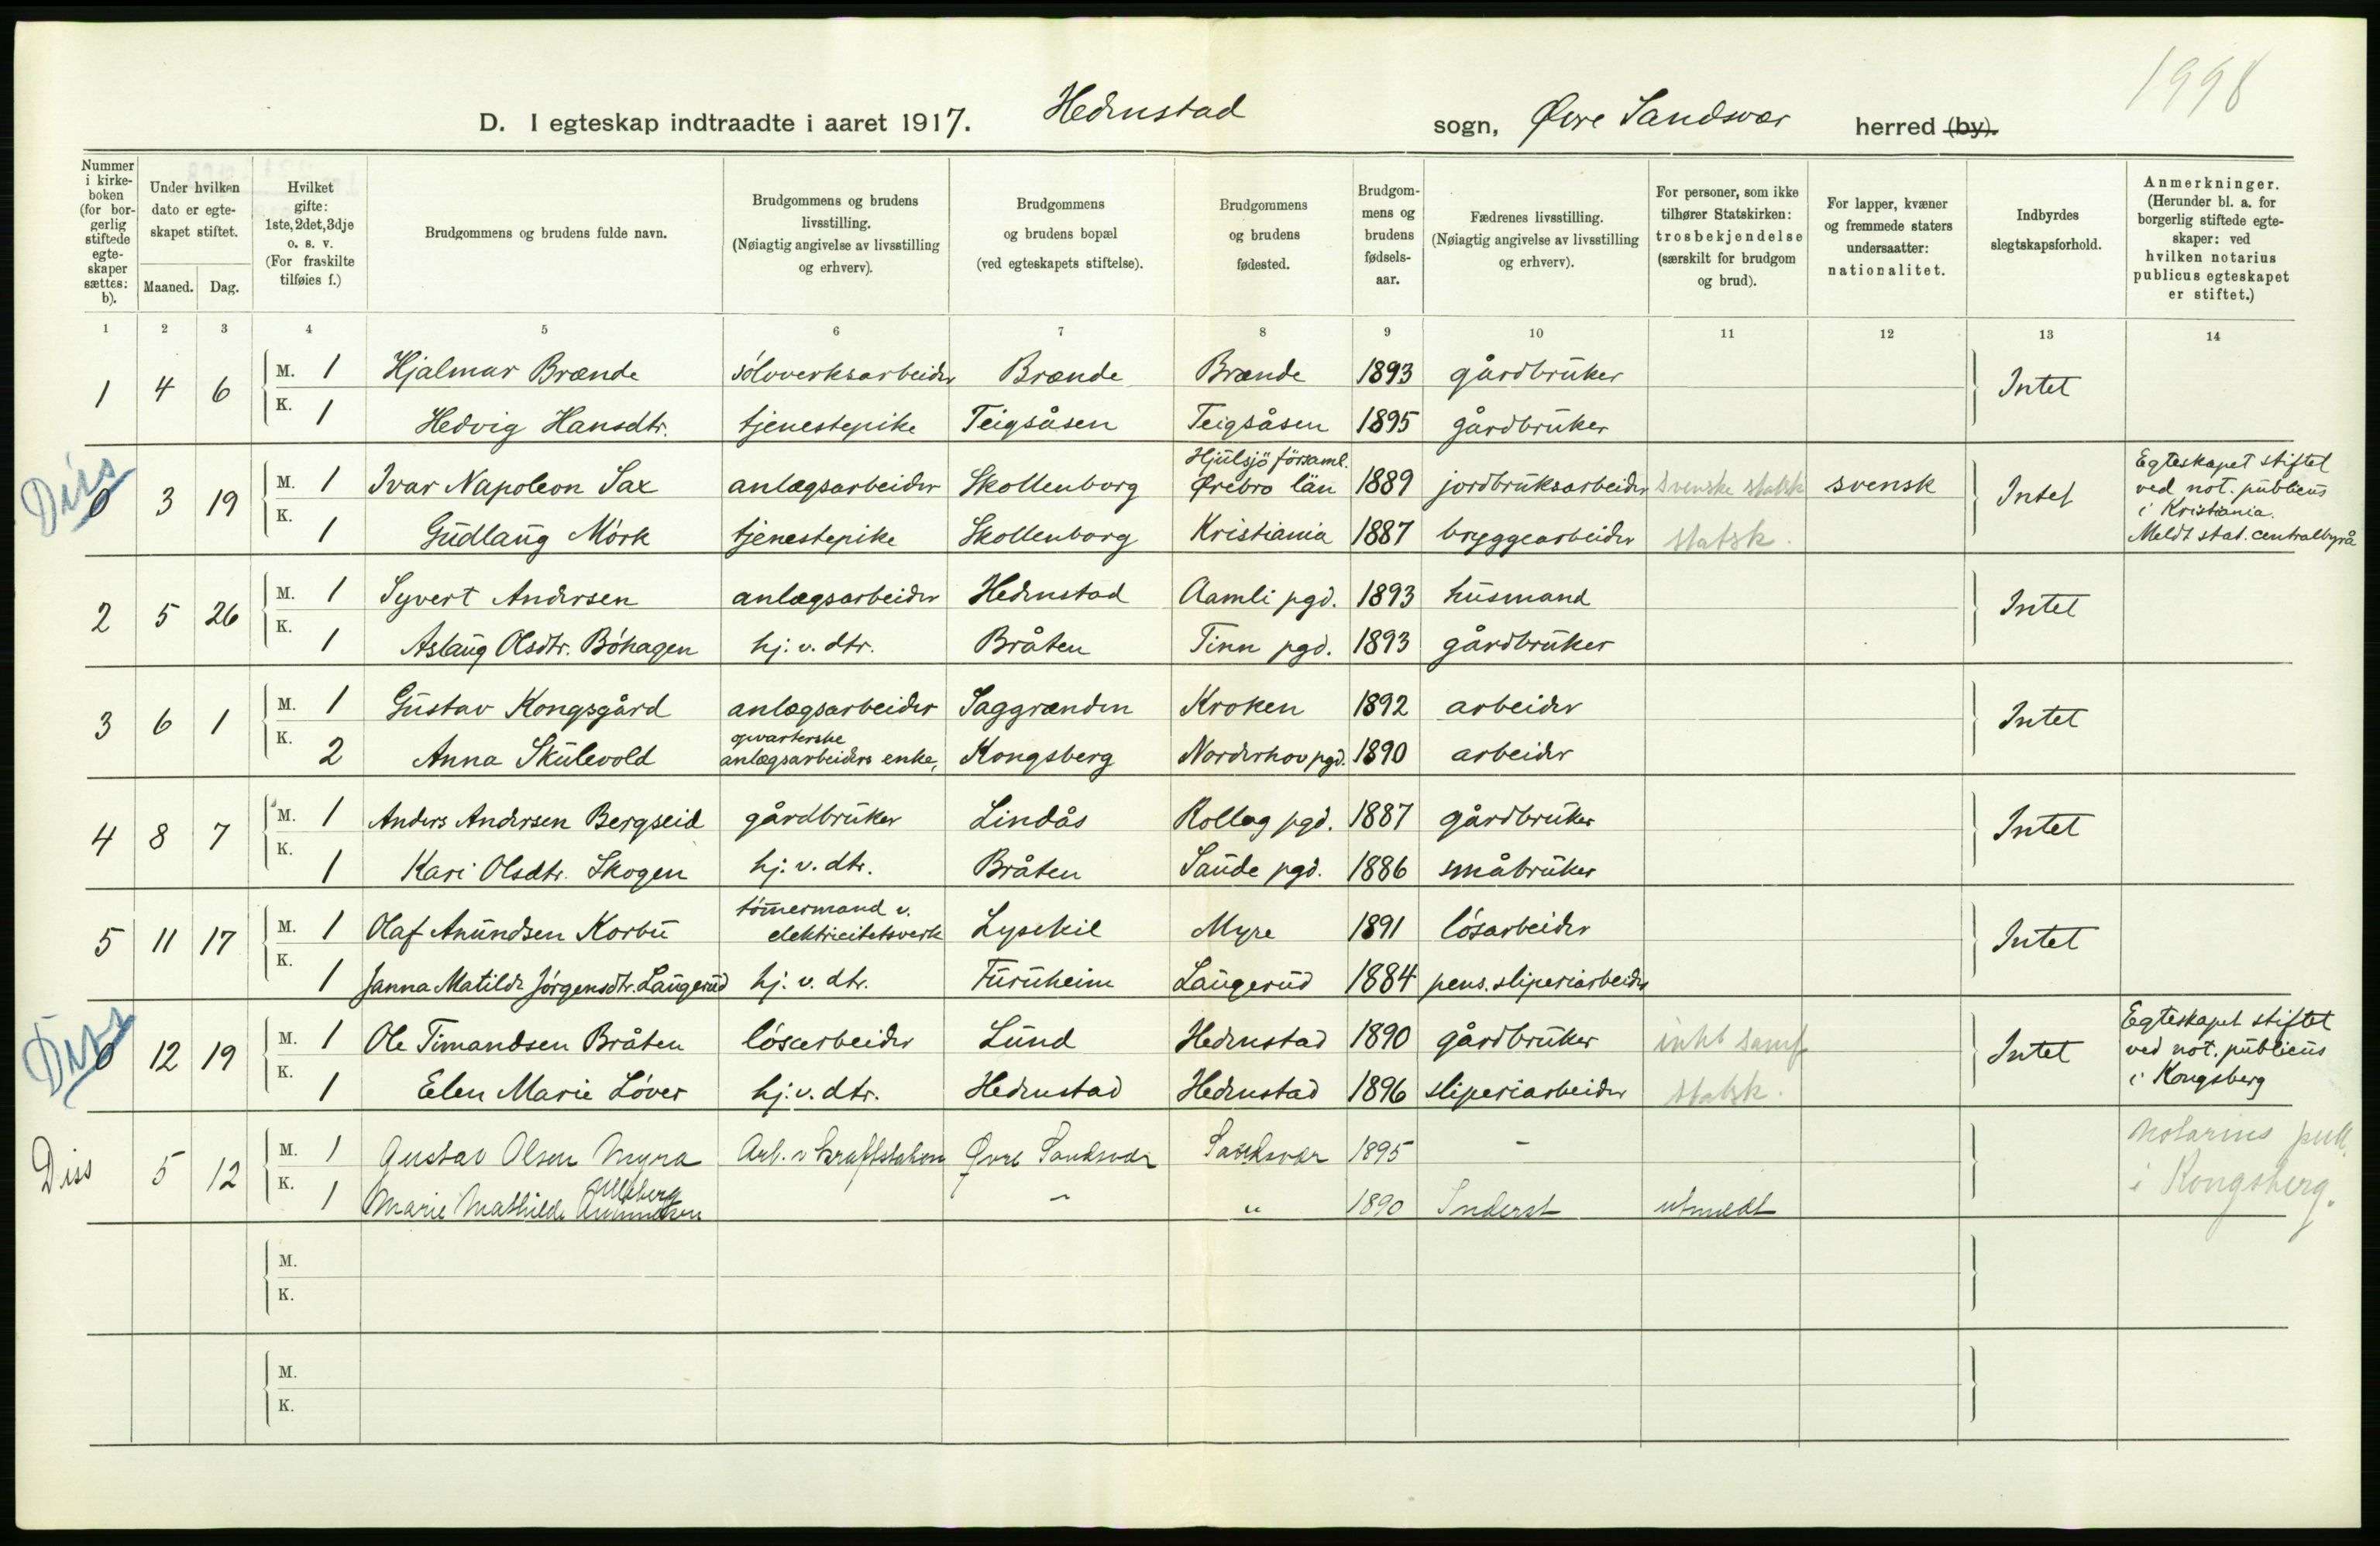 1998
D. I egteskap indtraadte i aaret 1917. Hedenstad sogn, Øvre Sandsvær herred (by).
Nummer i kirkeboken (for borgerlig stiftede egteskaper sættes: b).
Under hvilken dato er egteskapet stiftet.
Maaned. Dag.
Hvilket gifte: 1ste, 2det, 3dje o. s. v. (For fraskilte tilføies f.)
Brudgommens og brudens fulde navn.
Brudgommens og brudens livsstilling. (Nøiagtig angivelse av livsstilling og erhverv).
Brudgommens og brudens bopæl (ved egteskapets stiftelse).
Brudgommens og brudens fødested.
Brudgommens og brudens fødselsaar.
Fædrenes livsstilling. (Nøiagtig angivelse av livsstilling og erhverv).
For personer, som ikke tilhører Statskirken: trosbekjendelse (særskilt for brudgom og brud).
For lapper, kvæner og fremmede staters undersaatter: nationalitet.
Indbyrdes slegtskapsforhold.
Anmerkninger. (Herunder bl. a. for borgerlig stiftede egteskaper: ved hvilken notarius publicus egteskapet er stiftet.)
1 2 3 4 5 6 7 8 9 10 11 12 13 14
1 4 6 M. 1 Hjalmar Brænde sölvverksarbeider Brænde Brænde 1893 gårdbruker Intet
K. 1 Hedvig Hansdtr. tjenestepike Teigsåsen Teigsåsen 1895 gårdbruker
Diss 0 3 19 M. 1 Ivar Napoleon Sax anlægsarbeider Skollenborg Hjulsjö församl. Örebro län 1889 jordbruksarbeider svenske statsk svensk Intet Egteskapet stiftet ved not. publicus i Kristiania.
K. 1 Gudlaug Mörk tjenestepike Skollenborg Kristiania 1887 bryggearbeider statsk. Meldt stat. centralbyrå
2 5 26 M. 1 Syvert Andersen anlægsarbeider Hedenstad Aamli pgd. 1893 husmand Intet
K. 1 Aslaug Olsdtr. Böhagen hj. v. dtr. Bråten Tinn pgd. 1893 gårdbruker
3 6 1 M. 1 Gustav Kongsgård anlægsarbeider Saggrenden Kroken 1892 arbeider Intet
K. 2 Anna Skulevold opvarterske anlægsarbeiders enke, Kongsberg Norderhov pgd. 1890 arbeider
4 8 7 M. 1 Anders Andersen Bergseid gårdbruker Lindås Rollag pgd. 1887 gårdbruker Intet
K. 1 Kari Olsdtr. Skogen hj. v. dtr. Bråten Saude pgd. 1886 småbruker
5 11 17 M. 1 Olaf Anundsen Korbu tömmermand v. elektricitetsverk Lysekil Myre 1891 lösarbeider Intet
K. 1 Janna Matilde Jörgensdtr. Laugerud hj. v. dtr. Furuheim Laugerud 1884 pens. sliperiarbeider
Diss 0 12 19 M. 1 Ole Timandsen Bråten lösarbeider Lund Hedenstad 1890 gårdbruker intet samf Intet Egteskapet stiftet ved not. publicus i Kongsberg
K. 1 Elen Marie Löver hj. v. dtr. Hedenstad Hedenstad 1896 sliperiarbeider statsk.
Diss 5 12 M. 1 Gustav Olsen Myra Arb. v kraftstation Øvre Sandsvær Sandsvær 1895 - Notarius publ. i Kongsberg.
K. 1 Marie Mathilde - " 1890 Inderst utmeldt
M.
K.
M.
K.